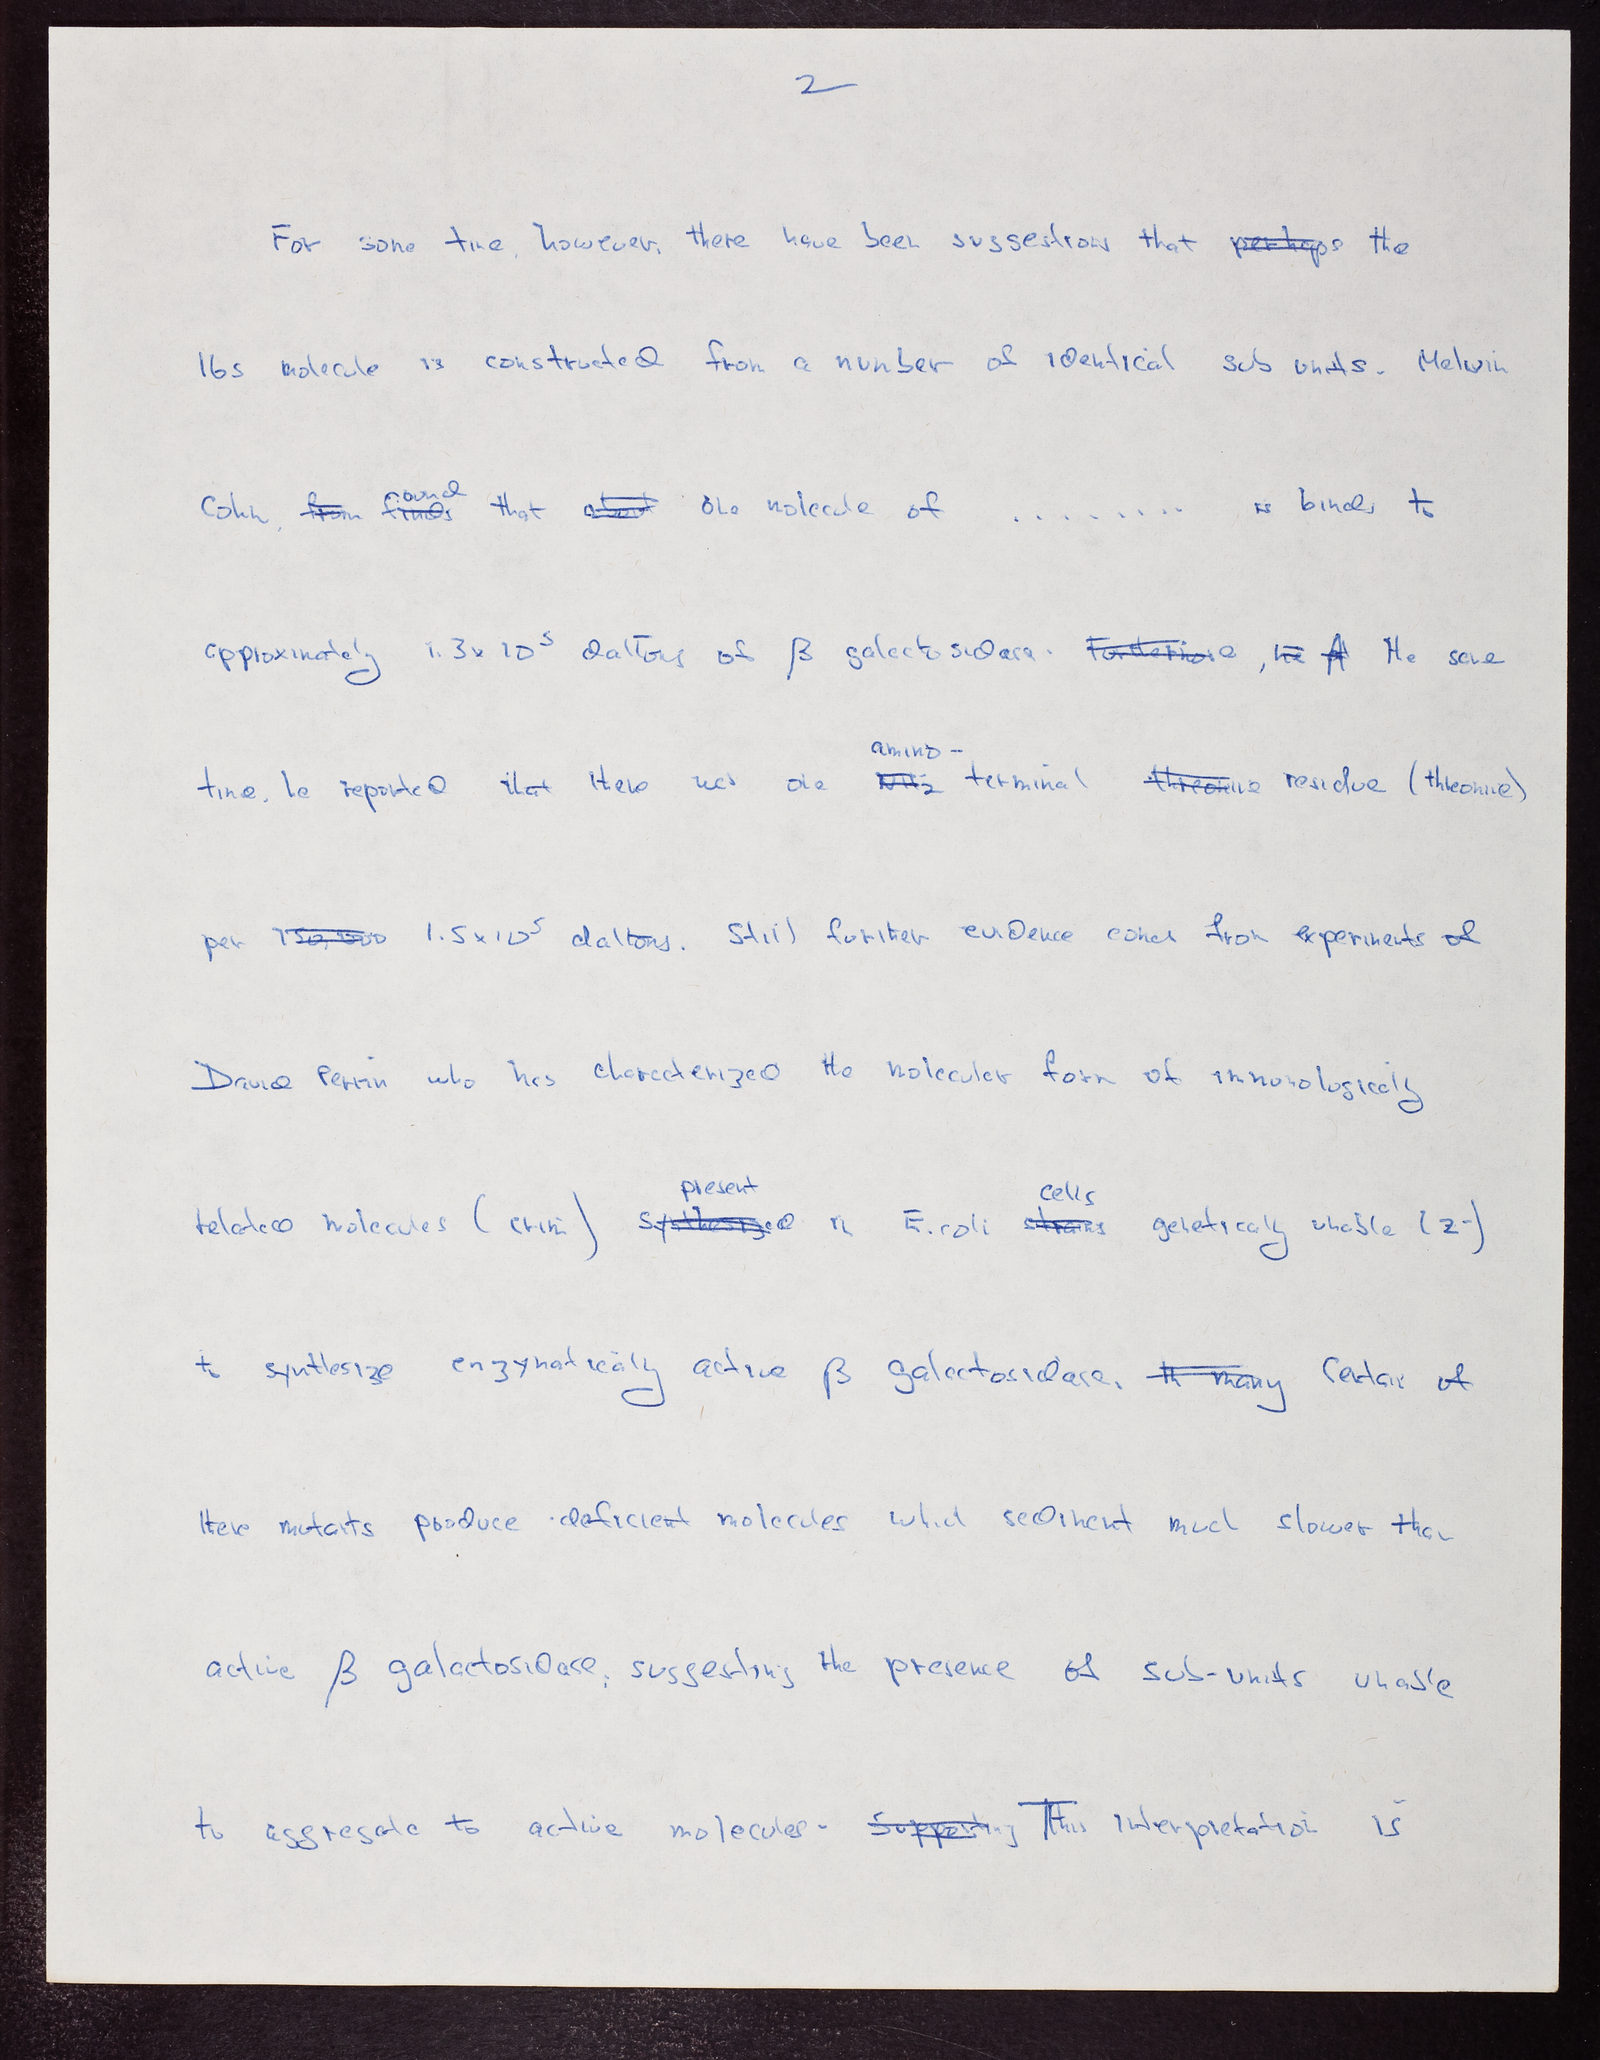 2
For some time, however, there have been suggestions that perhaps the
16s molecule is constructed from a number of identical sub units. Melvin
found
Cohn, from finds that about one molecule of ......... is binds to
approximately 1.3x10⁵ daltons of β galactosidase. Furthermore, he At the same
amino-
time, he reported that there was one NH₂ terminal threonine residue (threonine)
per 150,000 1.5x10⁵ daltons. Still further evidence comes from experiments of
David Perrin who has characterized the molecular form of immunologically
present cells
related molecules (crim) synthesized in E. coli strains genetically unable (z-)
to synthesize enzymatically active β galactosidase. In many Certain of
these mutants produce deficient molecules which sediment much slower than
active β galactosidase, suggesting the presence of sub-units unable
to aggregate to active molecules. Supporting This interpretation is